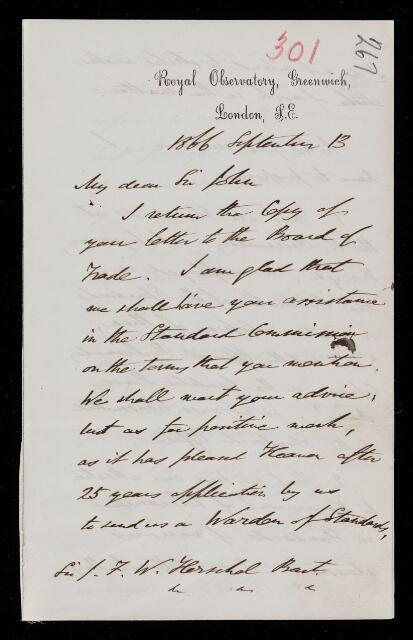 301
267
Royal Observatory, Greenwich,
London, S.E.
1866 September 13
My dear Sir John
I return the Copy of
your letter to the Board of
Trade. I am glad that
we shall have your assistance
in the Standard Commission
on the terms that you mention.
We shall want your advice,
but as for positive work,
as it has pleased Heaven after
25 years application by us
to send us a Warden of Standards,
Sir J. F. W. Herschel Bart.